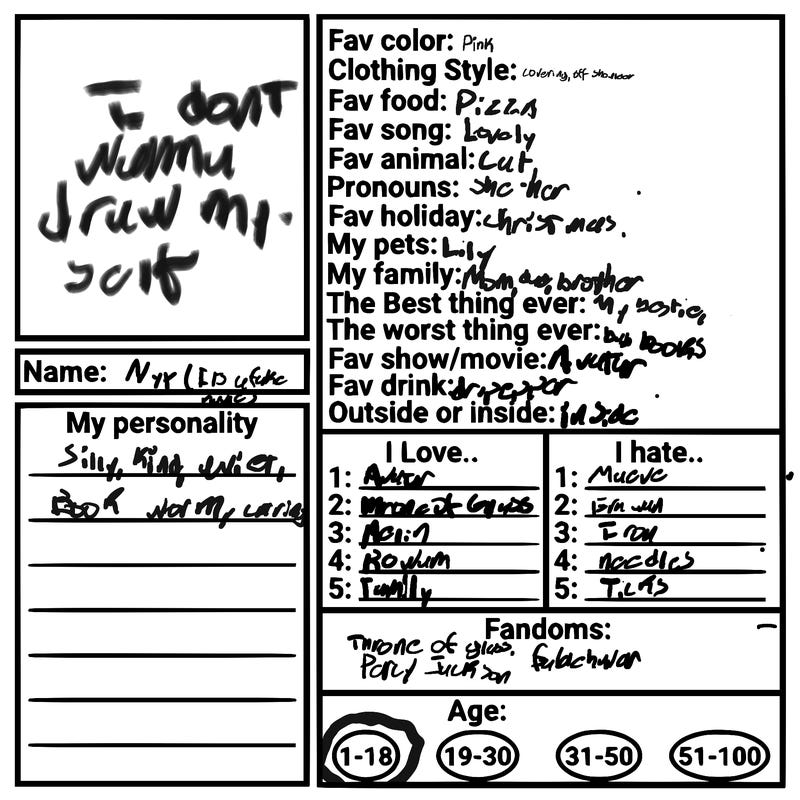 I dont
draw my
self
Name: Nyx (
My personality
Silly, Kind, quiet,
Book wormy, caring
Fav color: Pink
Clothing Style: covering, off shoulder
Fav food: Pizza
Fav song: Lovely
Fav animal: Cat
Pronouns: she her
Fav holiday: christmas.
My pets: Lily
My family: Mom, dad, brother
The Best thing ever: My bestie,
The worst thing ever: books
Fav show/movie:
Fav drink: dr pepper
Outside or inside: inside
I Love..
1:
2: throne of Glass
3:
4: Rowan
5: Family
I hate..
1: Maeve
2:
3: Iron
4: needles
5: Ticks
Fandoms:
Throne of glass,
Percy Jackson
Age:
1-18 19-30 31-50 51-100